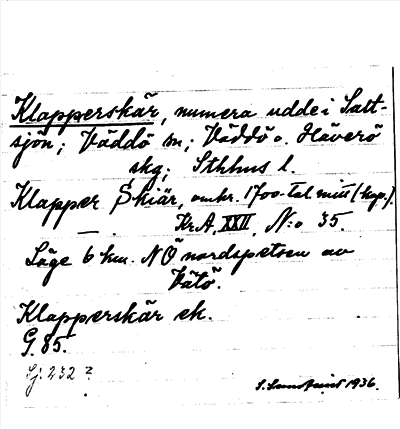 Klapperskär, numera udde i Salt-
sjön; Väddö sn; Väddö o. Häverö
skg; Sthlms l.
Klapper Skiär, omkr. 1700-tal mitt (kop.).
— . Kr. A. XXII, N:o 35.
Läge 6 km. NÖ nordspetsen av
Vätö.
Klapperskär ek.
G. 85.
Sj. 232 ?
1936.